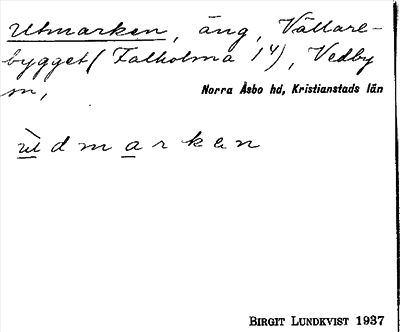 Utmarken, äng, Vällare-
bygget (Falholma 1⁴), Vedby
sn,
Norra Åsbo hd, Kristianstads län
ùdmarken
BIRGIT LUNDKVIST 1937